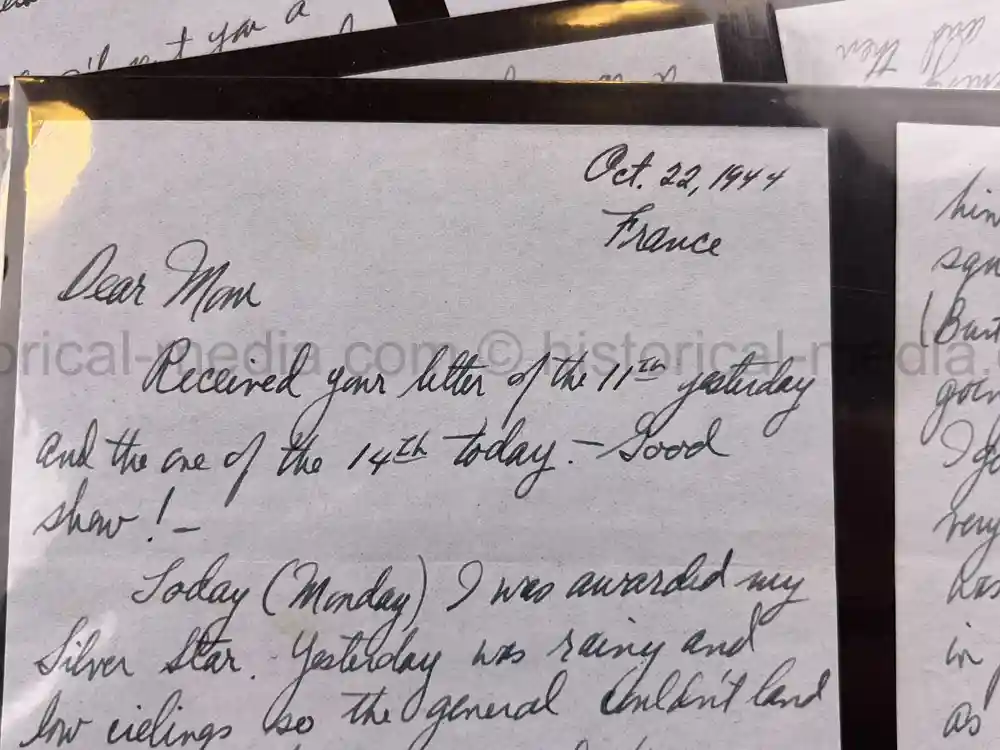 put you a
and then
Oct. 22, 1944
France
Dear Mom
Received your letter of the 11th yesterday
and the one of the 14th today. – Good
show! –
Today (Monday) I was awarded my
Silver Star. Yesterday was rainy and
low cielings so the general couldn't land
him
very
has
in
as
orical-media.com © historical-media.